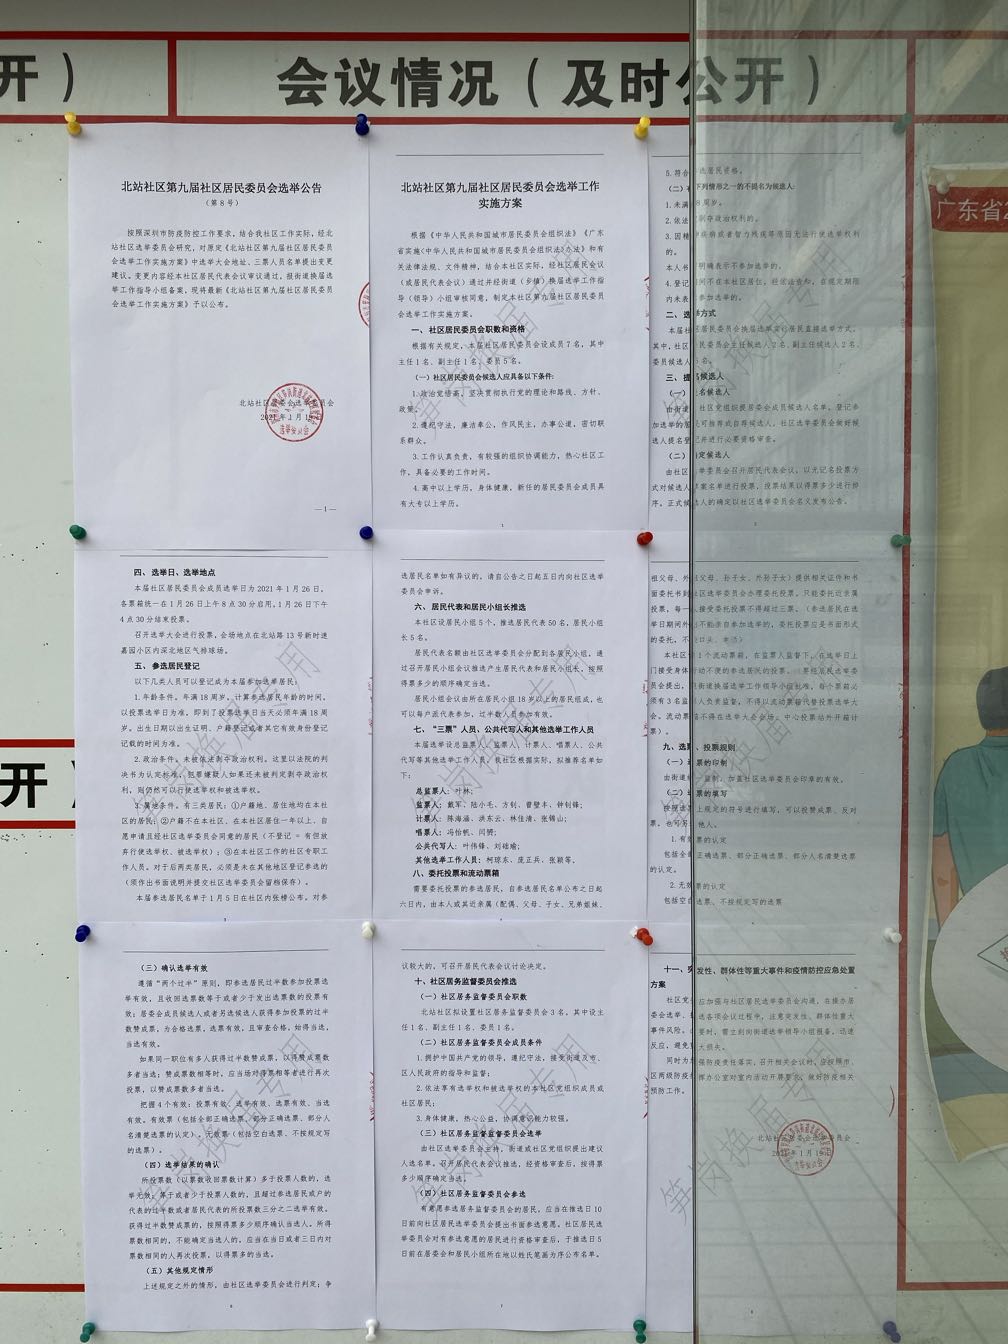 开）
会议情况（及时公开）
广东省
开）
北站社区第九届社区居民委员会选举公告
（第8号）
按照深圳市防疫防控工作要求，结合我社区工作实际，经北
站社区选举委员会研究，对原定《北站社区第九届社区居民委员
会选举工作实施方案》中选举大会地址、三票人员名单提出变更
建议。变更内容经本社区居民代表会议审议通过，报街道换届选
举工作指导小组备案，现将最新《北站社区第九届社区居民委员
会选举工作实施方案》予以公布。
北站社区居委会选举委员会
—1—
北站社区第九届社区居民委员会选举工作
实施方案
根据《中华人民共和国城市居民委员会组织法》《广东
省实施<中华人民共和国城市居民委员会组织法>办法》和有
关法律法规、文件精神，结合本社区实际，经社区居民会议
（或居民代表会议）通过并经街道（乡镇）换届选举工作指
导（领导）小组审核同意，制定本社区第九届社区居民委员
会选举工作实施方案。
一、社区居民委员会职数和资格
根据有关规定，本届社区居民委员会设成员7名，其中
主任1名、副主任1名、委员5名。
（一）社区居民委员会候选人应具备以下条件：
1.政治觉悟高，坚决贯彻执行党的理论和路线、方针、
政策。
2.遵纪守法，廉洁奉公，作风民主，办事公道，密切联
系群众。
3.工作认真负责，有较强的组织协调能力，热心社区工
作，具备必要的工作时间。
4.高中以上学历，身体健康，新任的居民委员会成员具
有大专以上学历。
5.符合 选居民资格。
（二）有下列情形之一的不提名为候选人：
1.未满 8周岁。
2.依法 剥夺政治权利的。
3.因精 疾病或者智力残疾等原因无法行使选举权利
的。
本人书 明确表示不参加选举的。
4.登记 间不在本社区居住，经依法告知，在规定期限
内未表 参加选举的。
二、选举方式
本届社 居民委员会换届选举实行居民直接选举方式。
其中，社区 民委员会主任候选人2名、副主任候选人2名、
委员候选人 名。
三、提 候选人
名候选人
由街道 社区党组织提居委会成员候选人名单，登记参
加选举的居 可推荐或自荐候选人，社区选举委员会做好候
选人提名登 并进行必要资格审查。
（二） 定候选人
由社区 举委员会召开居民代表会议，以无记名投票方
式对候选人 案名单进行投票，投票结果以得票多少进行排
序。正式候 人的确定以社区选举委员会名义发布公告。
四、选举日、选举地点
本届社区居民委员会成员选举日为2021年1月26日。
各票箱统一在1月26日上午8点30分启用，1月26日下午
4点30分结束投票。
召开选举大会进行投票，会场地点在北站路13号新时道
嘉园小区内深北地区气排球场。
五、参选居民登记
以下几类人员可以登记成为本届参加选举居民：
1.年龄条件。年满18周岁。计算参选居民年龄的时间，
以投票选举日为准，即到了投票选举日当天必须年满18周
岁。出生日期以出生证明、户籍登记或者其它有效身份登记
记载的时间为准。
2.政治条件。未被依法剥夺政治权利。这里以法院的判
决书为认定标准。犯罪嫌疑人如果还未被判定剥夺政治权
利，则仍然可以行使选举权和被选举权。
3.属地条件。有三类居民：①户籍地、居住地均在本社
区的居民；②户籍不在本社区、在本社区居住一年以上、自
愿申请且经社区选举委员会同意的居民（不登记＝有但放
弃行使选举权、被选举权）；③在本社区工作的社区专职工
作人员。对于后两类居民，必须是未在其他地区登记参选的
（须作出书面说明并提交社区选举委员会留档保存）。
本届参选居民名单于1月5日在社区内张榜公布。对参
选居民名单如有异议的，请自公告之日起五日内向社区选举
委员会申诉。
六、居民代表和居民小组长推选
本社区设居民小组5个，推选居民代表50名，居民小组
长5名。
居民代表名额由社区选举委员会分配到各居民小组，通
过召开居民小组会议推选产生居民代表和居民小组长，按照
得票多少的顺序确定当选。
居民小组会议由所在居民小组18岁以上的居民组成，也
可以每户派代表参加，过半数人员参加有效。
七、“三票”人员、公共代写人和其他选举工作人员
本届选举设总监票人、监票人、计票人、唱票人、公共
代写等其他选举工作人员，我社区根据实际，拟推荐名单如
下：
总监票人：叶林；
监票人：戴军、陆小毛、方钊、曾壁本、钟钊锋；
计票人：陈海涵、洪东云、林佳清、张锦山；
唱票人：冯怡帆、闫赟；
公共代写人：叶伟锋、刘础瑜；
其他选举工作人员：柯琼东、庞正兵、张颖等。
八、委托投票和流动票箱
需要委托投票的参选居民，自参选居民名单公布之日起
六日内，由本人或其近亲属（配偶、父母、子女、兄弟姐妹、
祖父母、外祖父母、孙子女、外孙子女）提供相关证件和书
面委托书到社区选举委员会办理委托投票。只能委托近亲属
投票，每一 接受委托投票不得超过三票。（参选居民在选
举日期间外 不能亲自参加选举的，委托投票应是书面形式
的委托，不 口头、电话）
本社区 1个流动票箱，在监票人监督下，在选举日上
门接受身体 动不便的参选居民的投票。
员会提出， 街道换届选举工作领导小组批准，每个票箱必
须有3名监 人负责监督，不得以流动票箱代替投票选举大
会。流动票 箱不得在选举大会会场、中心投票站外开箱计
票）。
九、选票、投票规则
（一）选票的印制
由街道统一监制，加盖社区选举委员会印章的有效。
（二） 票的填写
按照选 上规定的符号进行填写，可以投赞成票、反对
票，也可另 他人。
1.有效票的认定
包括全部正确选票、部分正确选票、部分人名清楚选票
的认定。
2.无效票的认定
包括空白选票、不按规定写的选票
（三）确认选举有效
遵循“两个过半”原则，即参选居民过半数参加投票选
举有效，且收回选票数等于或少于发出选票数的投票有
效；居委会成员候选人或者另选候选人获得参加投票的过半
数赞成票，为合格选票，选票有效，且审查合格，始得当选，
当选有效。
如果同一职位有多人获得过半数赞成票，以得赞成票数
多者当选；赞成票数相等时，应当场对得票相等者进行再次
投票，以赞成票数多者当选。
把握4个有效：投票有效、选举有效、选票有效、当选
有效。有效票（包括全部正确选票、部分正确选票、部分人
名清楚选票的认定）。无效票（包括空白选票、不按规定写
的选票）。
（四）选举结果的确认
所投票数（以票数收回票数计算）多于投票人数的，选
举无效；等于或者少于投票人数的，且超过参选居民或户的
代表的过半数或者居民代表的所投票数三分之二选举有效。
获得过半数赞成票的，按照得票多少顺序确认当选人。所得
票数相同的，不能确定当选人的，应当在当日或者三日内对
票数相同的人再次投票，以得票多的当选。
（五）其他规定情形
上述规定之外的情形，由社区选举委员会进行判定；争
议较大的，可召开居民代表会议讨论决定。
十、社区居务监督委员会推选
（一）社区居务监督委员会职数
北站社区拟设置社区居务监督委员会3名，其中设主
任1名、副主任1名、委员1名。
（二）社区居务监督委员会成员条件
1.拥护中国共产党的领导，遵纪守法，接受街道及市、
区人民政府的指导和监督；
2.依法享有选举权和被选举权的本社区党组织成员或
社区居民；
3.身体健康，热心公益，协调意识能力较强。
（三）社区居务监督监督委员会选举
由社区选举委员会主持，街道或社区党组织提出建议
人选名单。召开居民代表会议推选，经资格审查后，按得票
多少顺序确定当选。
（四）社区居务监督委员会参选
有意愿参选居务监督委员会的居民，应当在推选日10
日前向社区居民选举委员会提出书面参选意愿。社区居民选
举委员会对有参选意愿的居民进行资格审查后，于推选日5
日前在居委会和居民小组所在地以姓氏笔画为序公布名单。
十一、突发性、群体性等重大事件和疫情防控应急处置
方案
社区党 应加强与社区居民选举委员会沟通，在操办居
委会选举、 选各项会议过程中，注意突发性、群体性重大
事件风险。 要时，需立刻向街道选举领导小组报备，迅速
反应，避免 大损失。
同时为 强防疫责任落实，召开相关会议时，应按照市、
区两级防疫 挥办公室对室内活动开展要求，做好防疫相关
预防工作。
北站社区居委会选举委员会